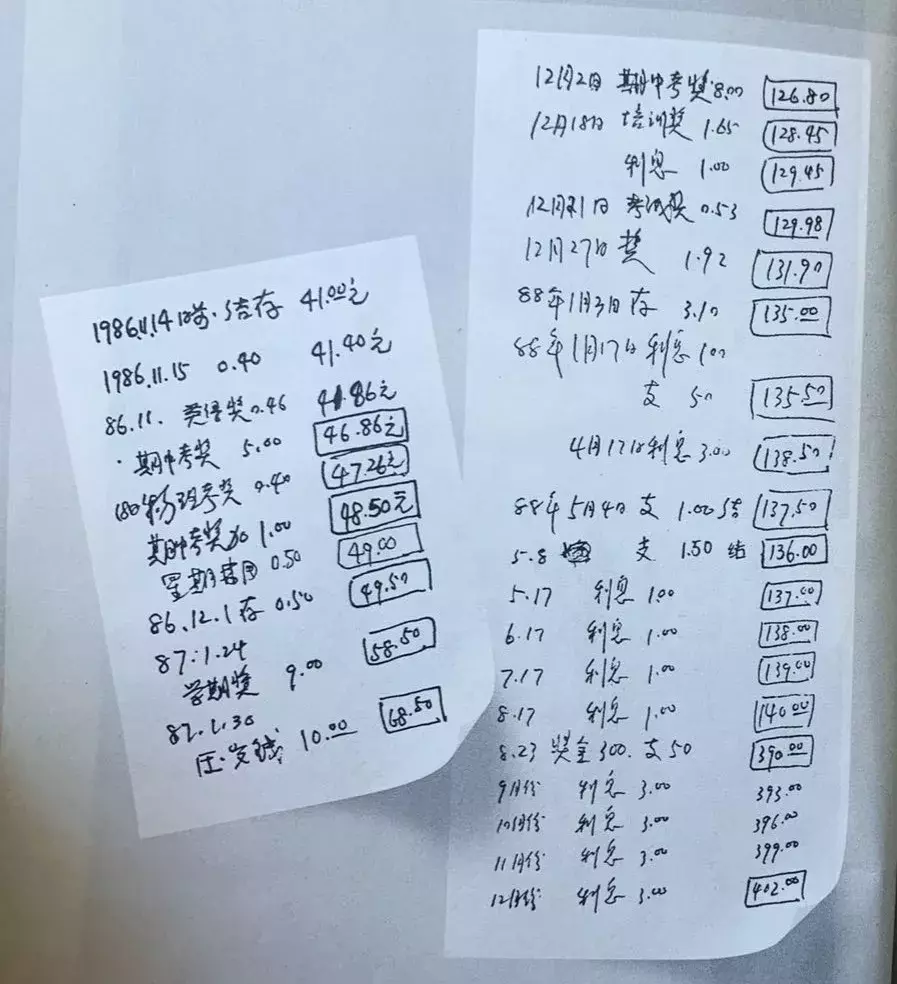 1986.11.14日前·结存 41.00元
1986.11.15 0.40 41.40元
86.11. 英语奖0.46 41.86元
·期中考奖 5.00 46.86元
考奖 0.40 47.26元
期中考奖加 1.00 48.50元
星期 0.50 49.00
86.12.1存0.50 49.50
87.1.24
学期奖 9.00 58.50
87.1.30
压岁钱 10.00 68.50
12月2日 期中考奖8.00 126.80
12月18日 培训奖 1.65 128.45
利息 1.00 129.45
12月21日 考试奖0.53 129.98
12月27日奖 1.92 131.90
88年1月3日存 3.10 135.00
88年1月17日利息1.00
支 50 135.50
4月17日利息3.00 138.50
88年5月4日支 1.00结 137.50
5.8 支 1.50 结 136.00
5.17 利息 1.00 137.00
6.17 利息 1.00 138.00
7.17 利息 1.00 139.00
8.17 利息 1.00 140.00
8.23 奖金300.支50 390.00
9月份 利息 3.00 393.00
10月份 利息 3.00 396.00
11月份 利息 3.00 399.00
12月份 利息 3.00 402.00